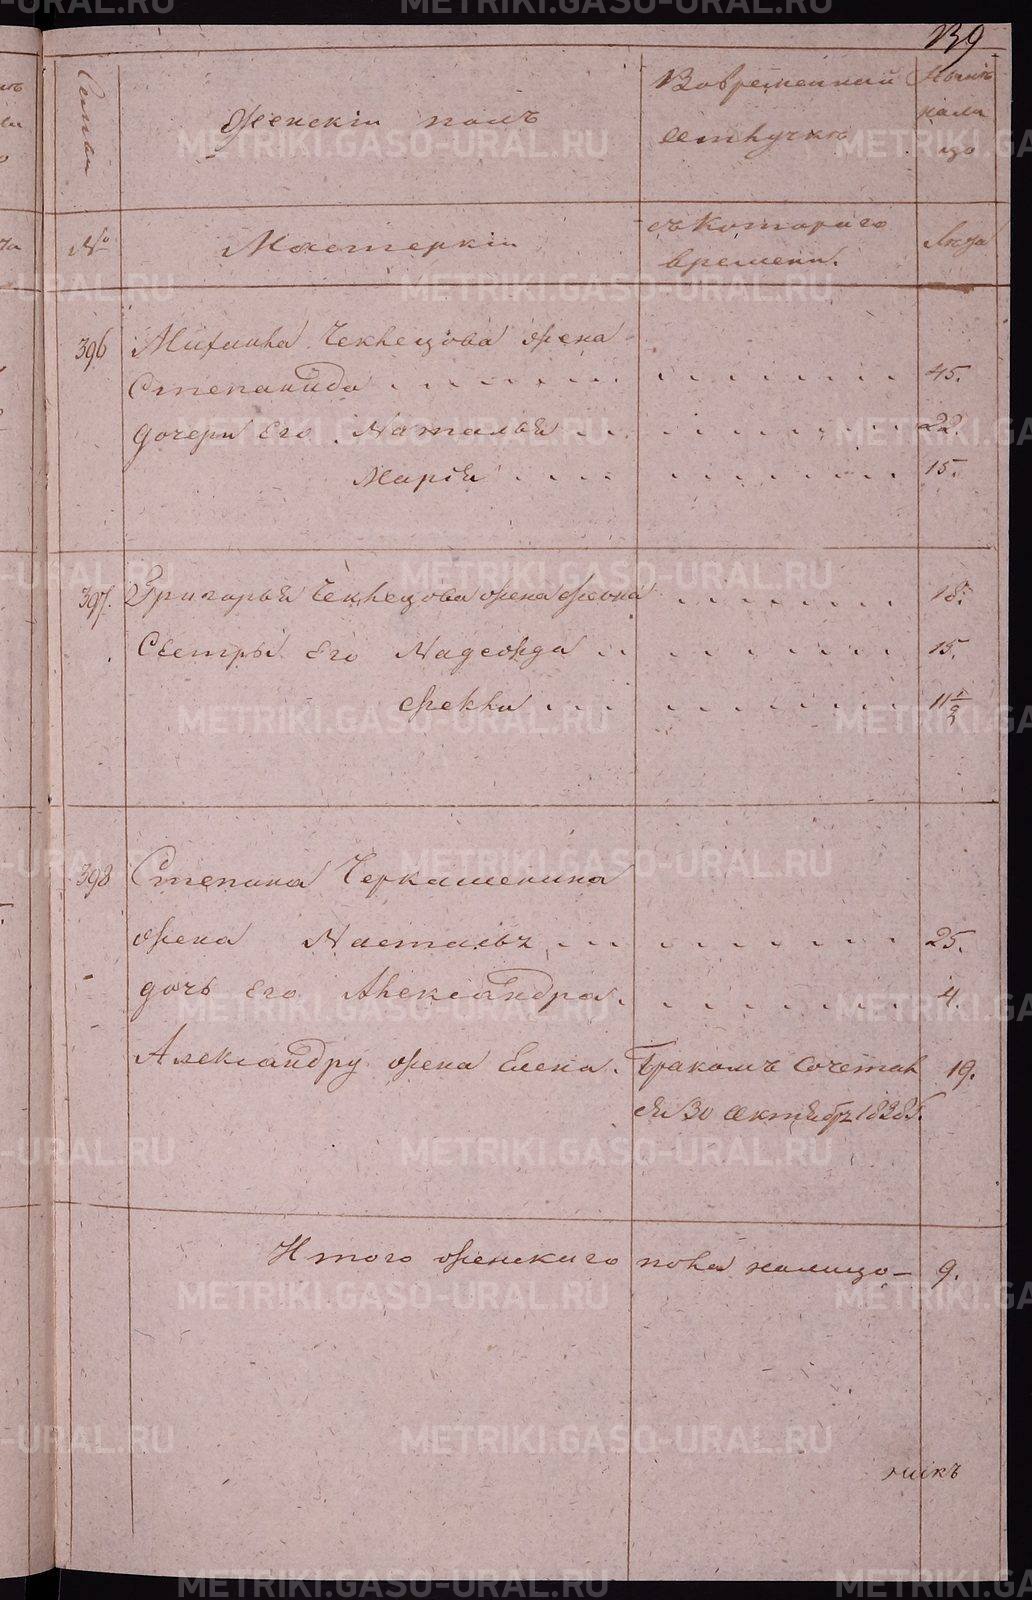 139
Семьи
Женскій полъ
Вовременной
отлучкѣ
Нынѣ
нали
цо
№
Мастеркіи
съ котораго
времени.
Лѣта
396 Михаила Чеклецова жена
Степанида 45.
дочери Его Наталья 22.
Марія 15.
397. Григорья Чеклецова жена 18.
Сестры Его Надежда 15.
Фекла 11 1/2
398 Степана Черкашенина
жена Наталья 25.
дочь Его Александра. 4.
Александру жена Елена. Бракомъ Сочетан 19.
ся 30 октября
Итого женскаго пола налицо — 9.
METRIKI.GASO-URAL.RU